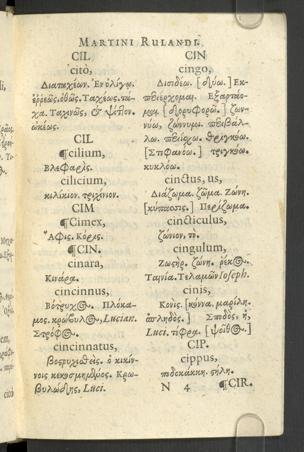 MARTINI RULANDI
CIL
citò,
Διαταχέων. Ἐν ὀλίγῳ.
Ταχέως. τά-
χα. Ταχινῶς,
ὠκέως.
CIL
¶cilium,
Βλεφαρίς.
cilicium,
κιλίκιον. τρίχινον.
CIM
¶Cimex,
Ἄφις. Κόρις.
¶CIN.
cinara,
Κινάρα.
cincinnus,
Βότρυχος. Πλόκα-
μος. κρωβυλος, Lucian.
Στρόφος.
cincinnatus,
βοστρυχωθεὶς. ὁ κικίν-
νοις κεκοσμημένος. Κρω-
βυλώδης, Luci.
CIN
cingo,
Ἐκ-
περιέρχομαι. Ἐξαρτέο-
μαι. [δορυφορῶ.] ζων-
νύω, ζώννυμι. περιβάλ-
λω. περιέχω. θριγκόω.
[Στεφανόω.] τριγκόω.
κυκλόω.
cinctus, us,
Διάζωμα. ζῶμα. Ζώνη.
Περίζωμα.
cincticulus,
ζώνιον, τὸ.
cingulum,
Ζωστὴρ. ζώνη.
Ταινία. Τελαμὼν Ioseph.
cinis,
Κόνις. μαρίλη.
Σποδὸς, ἡ,
Luci. τέφρα.
CIP.
cippus,
ποδοκάκκη. στήλη.
N 4 ¶CIR.